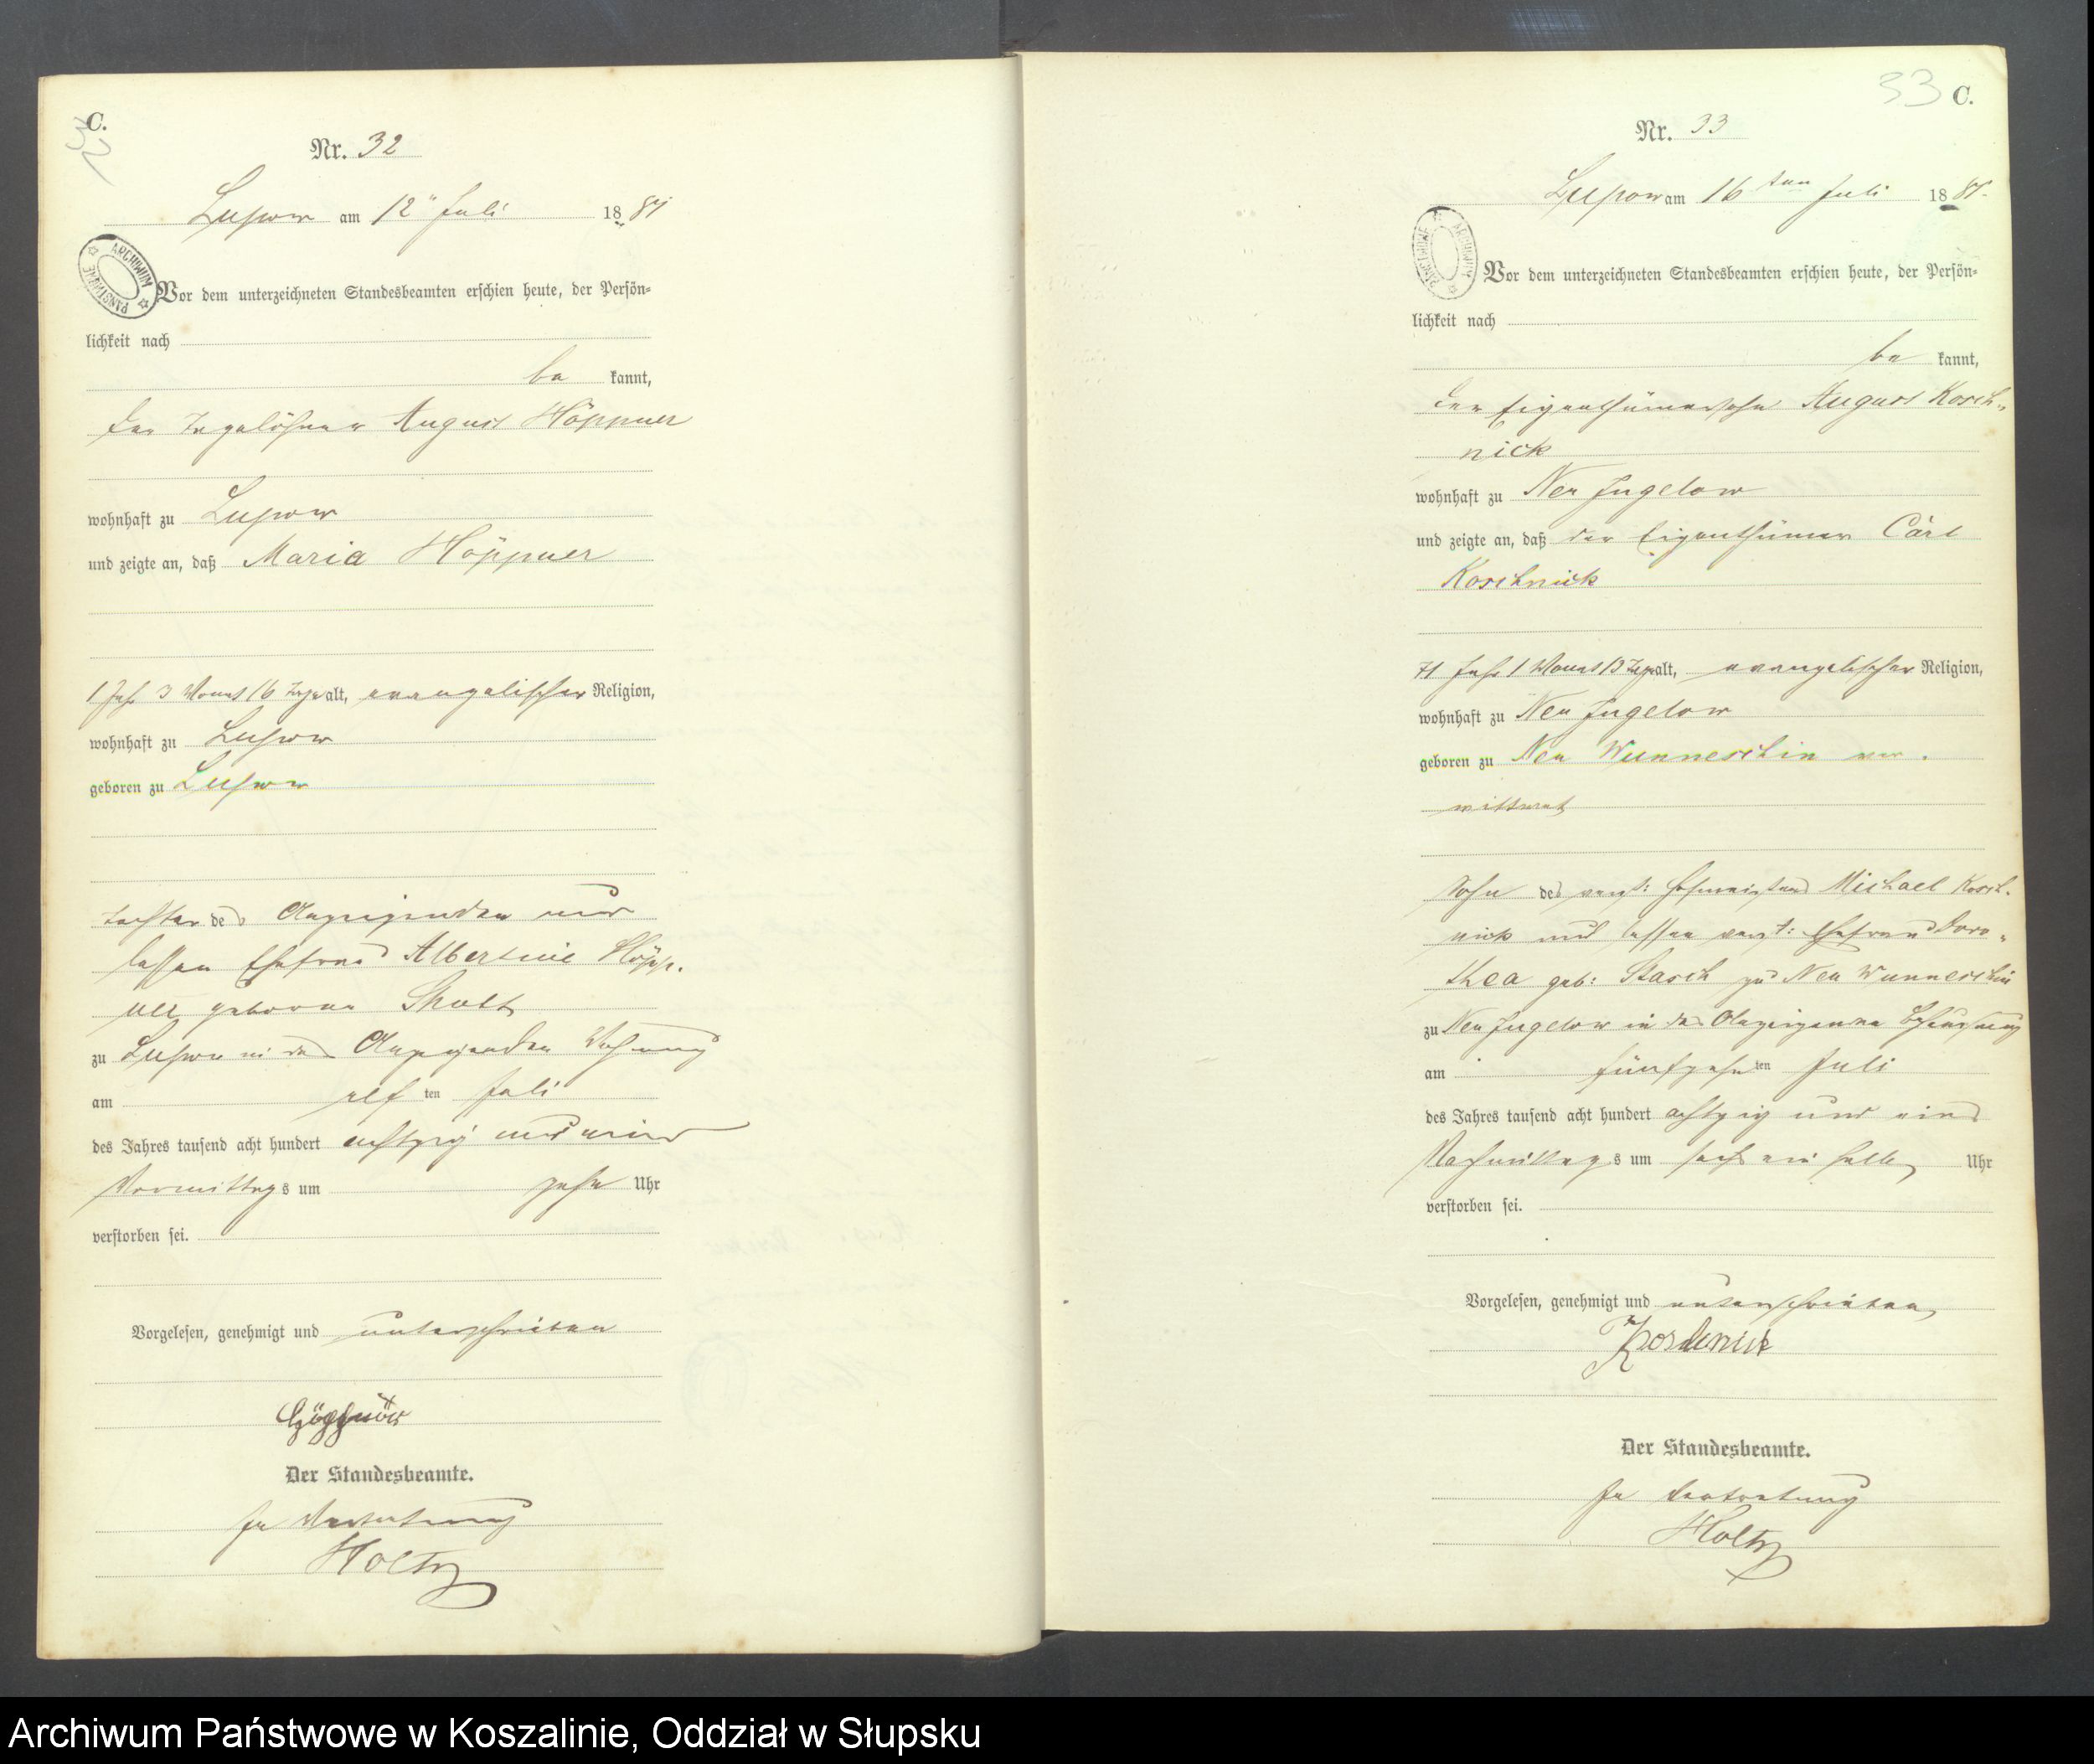 C.
32
Nr. 32
Lupow am 12ten Juli 1881
ARCHIWUM PAŃSTWOWE
Vor dem unterzeichneten Standesbeamten erschien heute, der Persön-
lichkeit nach
be kannt,
der Tagelöhner August Höppner
wohnhaft zu Lupow
und zeigte an, daß Maria Höppner
1 Jahr 3 Monat 16 Tage alt, evangelischer Religion,
wohnhaft zu Lupow
geboren zu Lupow
Tochter des Anzeigenden und
dessen Ehefrau Albertine Höpp-
ner geborne
zu Lupow in des Anzeigenden Wohnung
am elf ten Juli
des Jahres tausend acht hundert achtzig und eins
Vormittags um zehn Uhr
verstorben sei.
Vorgelesen, genehmigt und unterschrieben
Höppner
Der Standesbeamte.
In Vertretung
Holtz
33 C.
Nr. 33
Lupow am 16ten Juli 1881.
ARCHIWUM PAŃSTWOWE
Vor dem unterzeichneten Standesbeamten erschien heute, der Persön-
lichkeit nach
be kannt,
der Eigenthümersohn August Kosch-
nick
wohnhaft zu Neu Jugelow
und zeigte an, daß der Eigenthümer Carl
Koschnick
71 Jahr 1 Monat 13 Tage alt, evangelischer Religion,
wohnhaft zu Neu Jugelow
geboren zu Neu Wunneschin ver-
wittwet
Sohn des verst: Michael Kosch-
nick und dessen verst: Ehefrau Doro-
thea geb: Stasch zu Neu Wunneschin
zu Neu Jugelow in des Anzeigenden Behausung
am fünfzehn ten Juli
des Jahres tausend acht hundert achtzig und eins
Nachmittags um sechs ein halb Uhr
verstorben sei.
Vorgelesen, genehmigt und unterschrieben
Koschnick
Der Standesbeamte.
In Vertretung
Holtz
Archiwum Państwowe w Koszalinie, Oddział w Słupsku